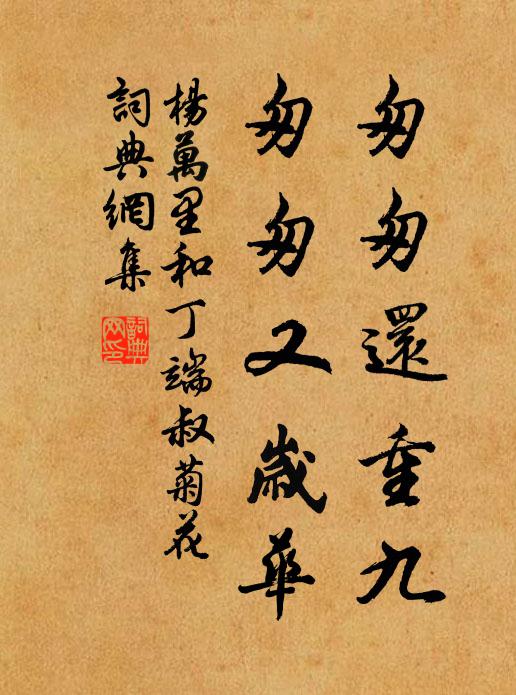 匆匆還重九
匆匆又歲華
楊萬里和丁端叔菊花
詞典網集
詞典
网印